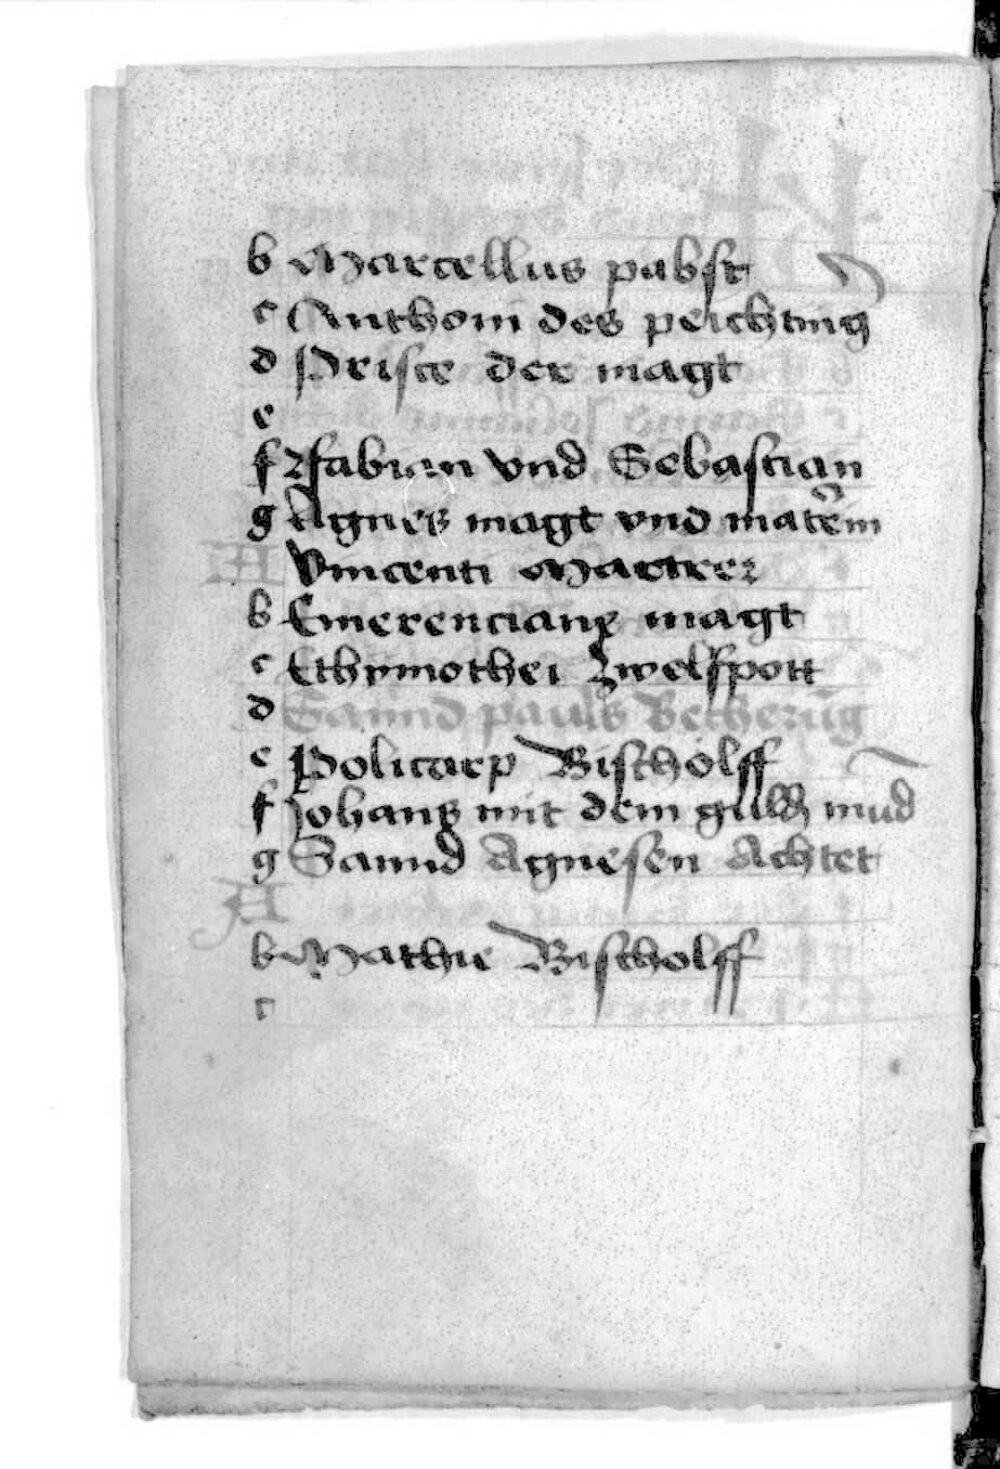 b Marcellus pabst
c Anthoni des peichting
d Prisce der magt
e
f Fabian vnd Sebastian
g Agnes magt vnd materin
A Vincenti Martrer
b Emerenciane magt
c Thymothei Zwelfpott
d Sannd pauls Becherũg
e Policarp Bischolff
f Johans mit dem guldn mũd
g Sannd Agnesen Achtet
A
b Mathie Bischolff
c